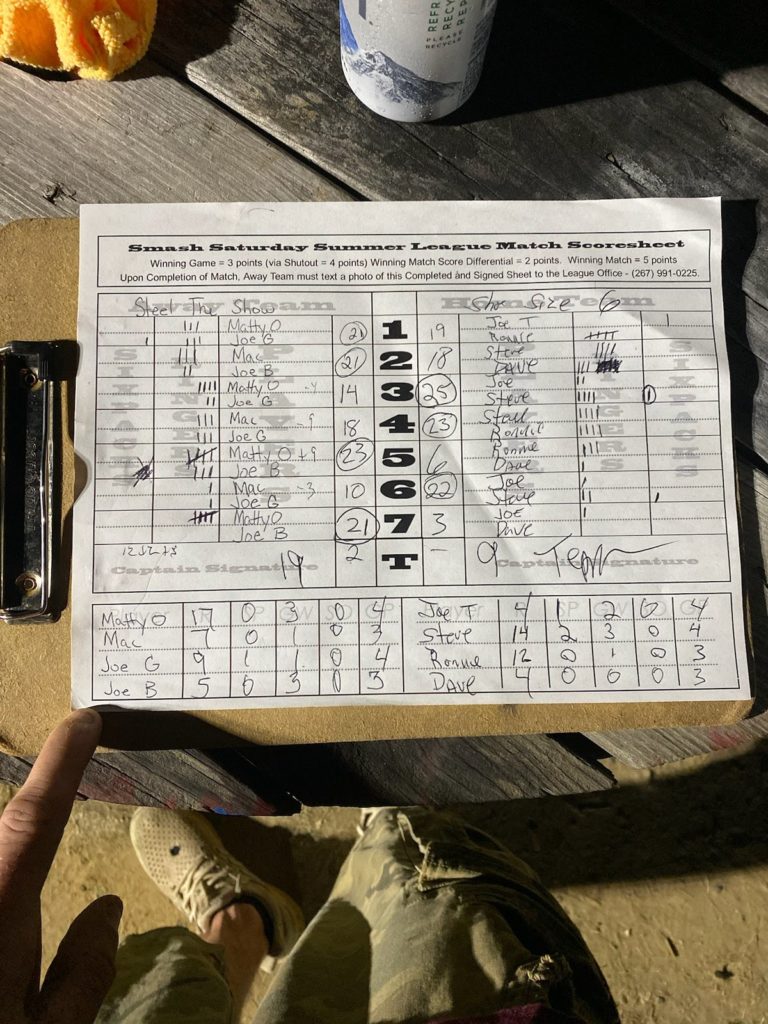 REFR
RECY
REP
PLEASE
RECYCLE
Smash Saturday Summer League Match Scoresheet
Winning Game = 3 points (via Shutout = 4 points) Winning Match Score Differential = 2 points. Winning Match = 5 points
Upon Completion of Match, Away Team must text a photo of this Completed and Signed Sheet to the League Office - (267) 991-0225.
Away Team Home Team
Steel The Show Shoe Size 6
Matty O 21 1 19 Joe T
Joe G Ronnie
Mac 21 2 18 Steve
Joe B DAVE
Matty O -4 14 3 25 Joe
Joe G Steve
Mac -9 18 4 23
Joe G Ronnie
Matty O +9 23 5 6 Ronnie
Joe B Dave
Mac -3 10 6 22 Joe
Joe G Steve
Matty O 21 7 3 JOE
Joe B Dave
2 T -
19 9
Captain Signature Captain Signature
Matty O 17 0 3 0 4 Joe T 4 1 2 0 4
Mac 7 0 1 0 3 Steve 14 2 3 0 4
Joe G 9 1 1 0 4 Ronnie 12 0 1 0 3
Joe B 5 0 3 0 3 DAVE 4 0 0 0 3